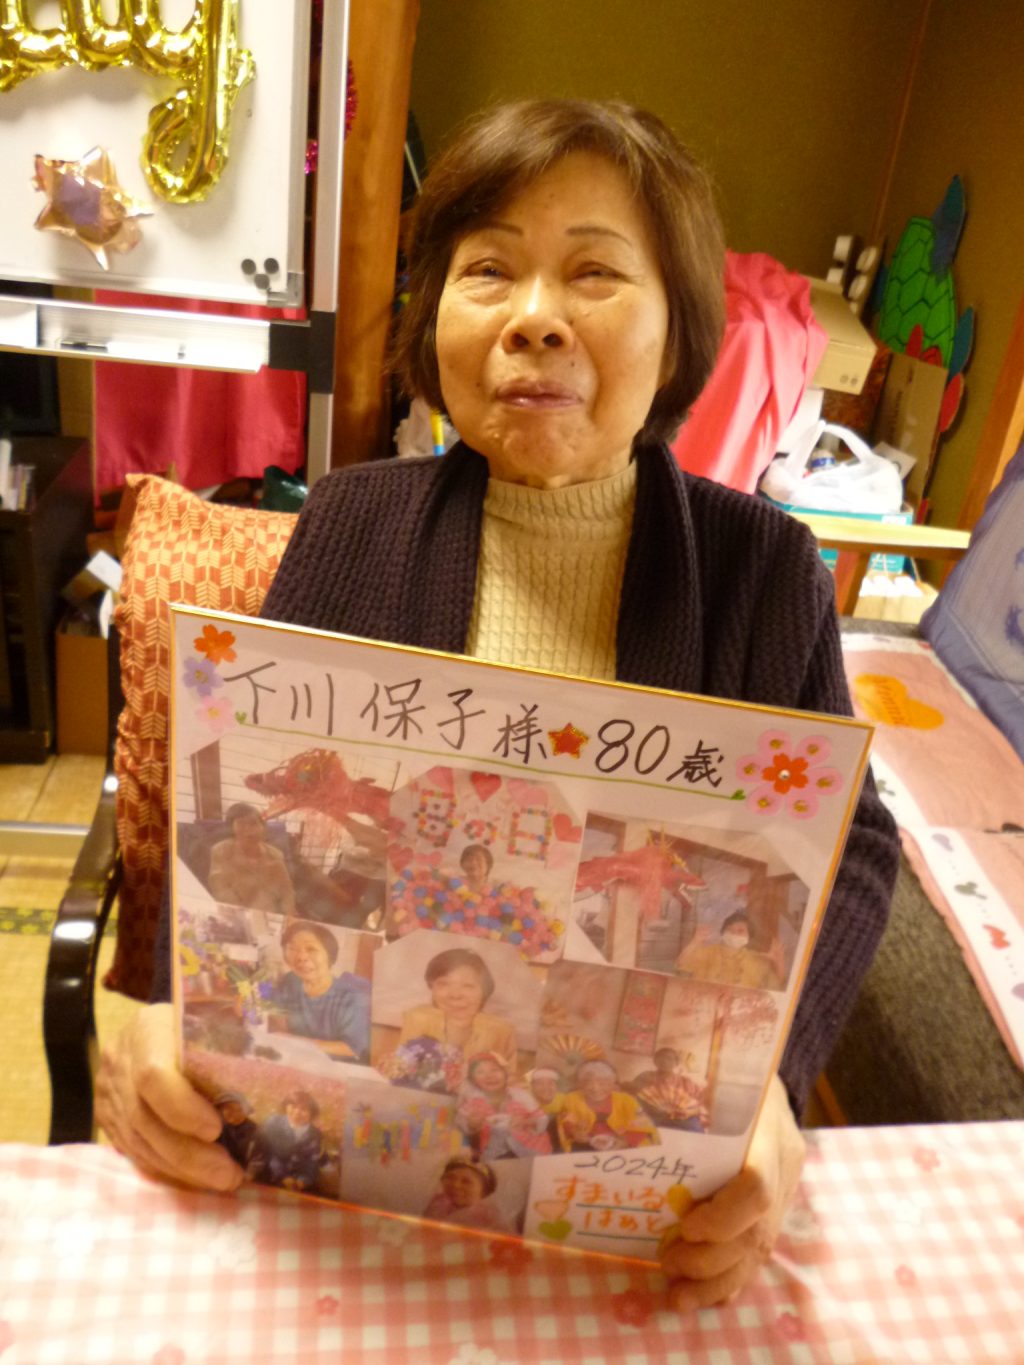 下川 保子 様 80歳
母の日
2024年
すまいる
はぁと